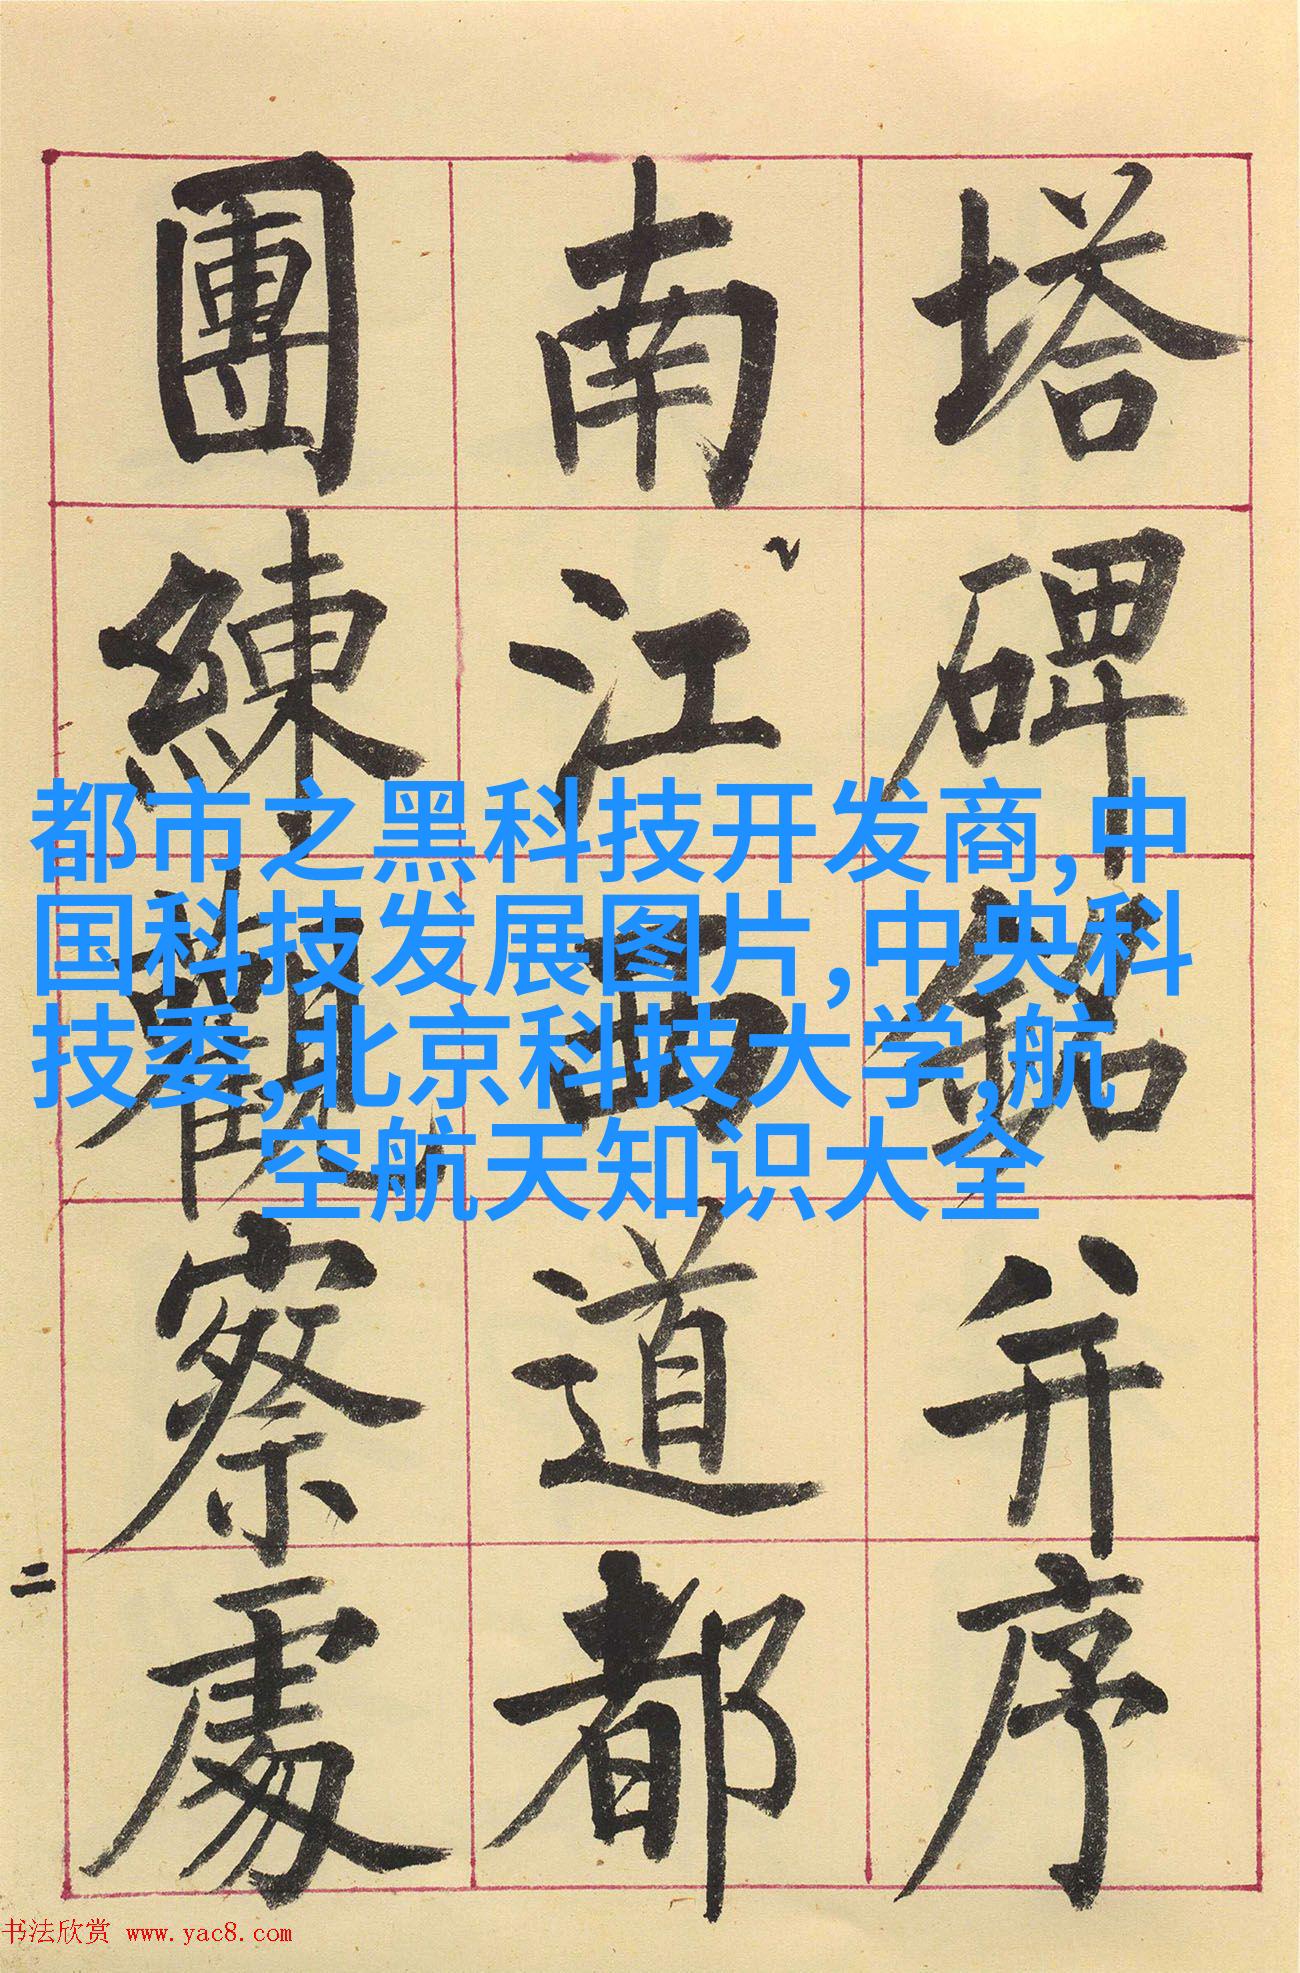 塔碑銘并序
南江西道都
團練觀察處
二
都市之黑科技开发商,中
国科技发展图片,中央科
技委,北京科技大学,航
空航天知识大全
书法欣赏 www.yac8.com